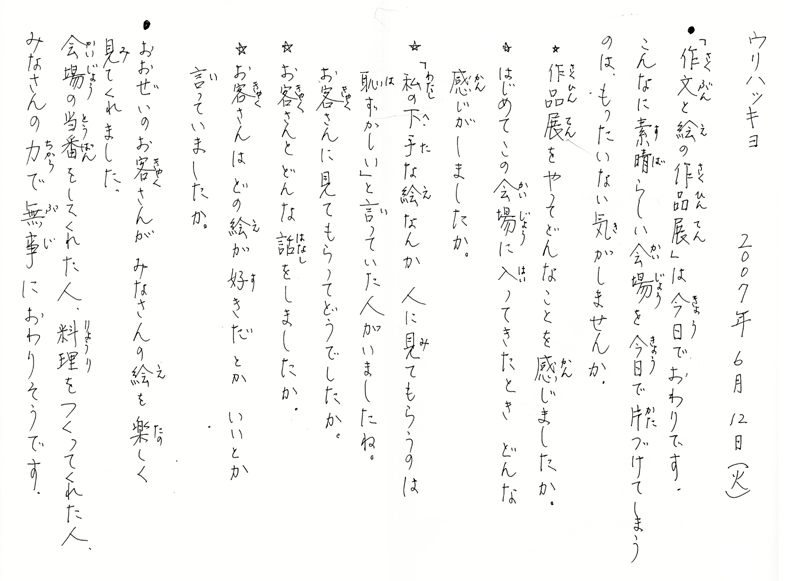 ウリハッキョ
2007年6月12日(火)
・「作文と絵の作品展」は今日でおわりです。
こんなに素晴らしい会場を今日で片づけてしまう
のは、もったいない気がしませんか。
★作品展をやってどんなことを感じましたか。
☆はじめてこの会場に入ってきたときどんな
感じがしましたか。
☆「私の下手な絵なんか人に見てもらうのは
恥ずかしい」と言っていた人がいましたね。
お客さんに見てもらってどうでしたか。
☆お客さんとどんな話をしましたか。
☆お客さんはどの絵が好きだとかいいとか
言っていましたか。
・おおぜいのお客さんがみなさんの絵を楽しく
見てくれました。
会場の当番をしてくれた人、料理をつくってくれた人、
みなさんの力で無事におわりそうです。